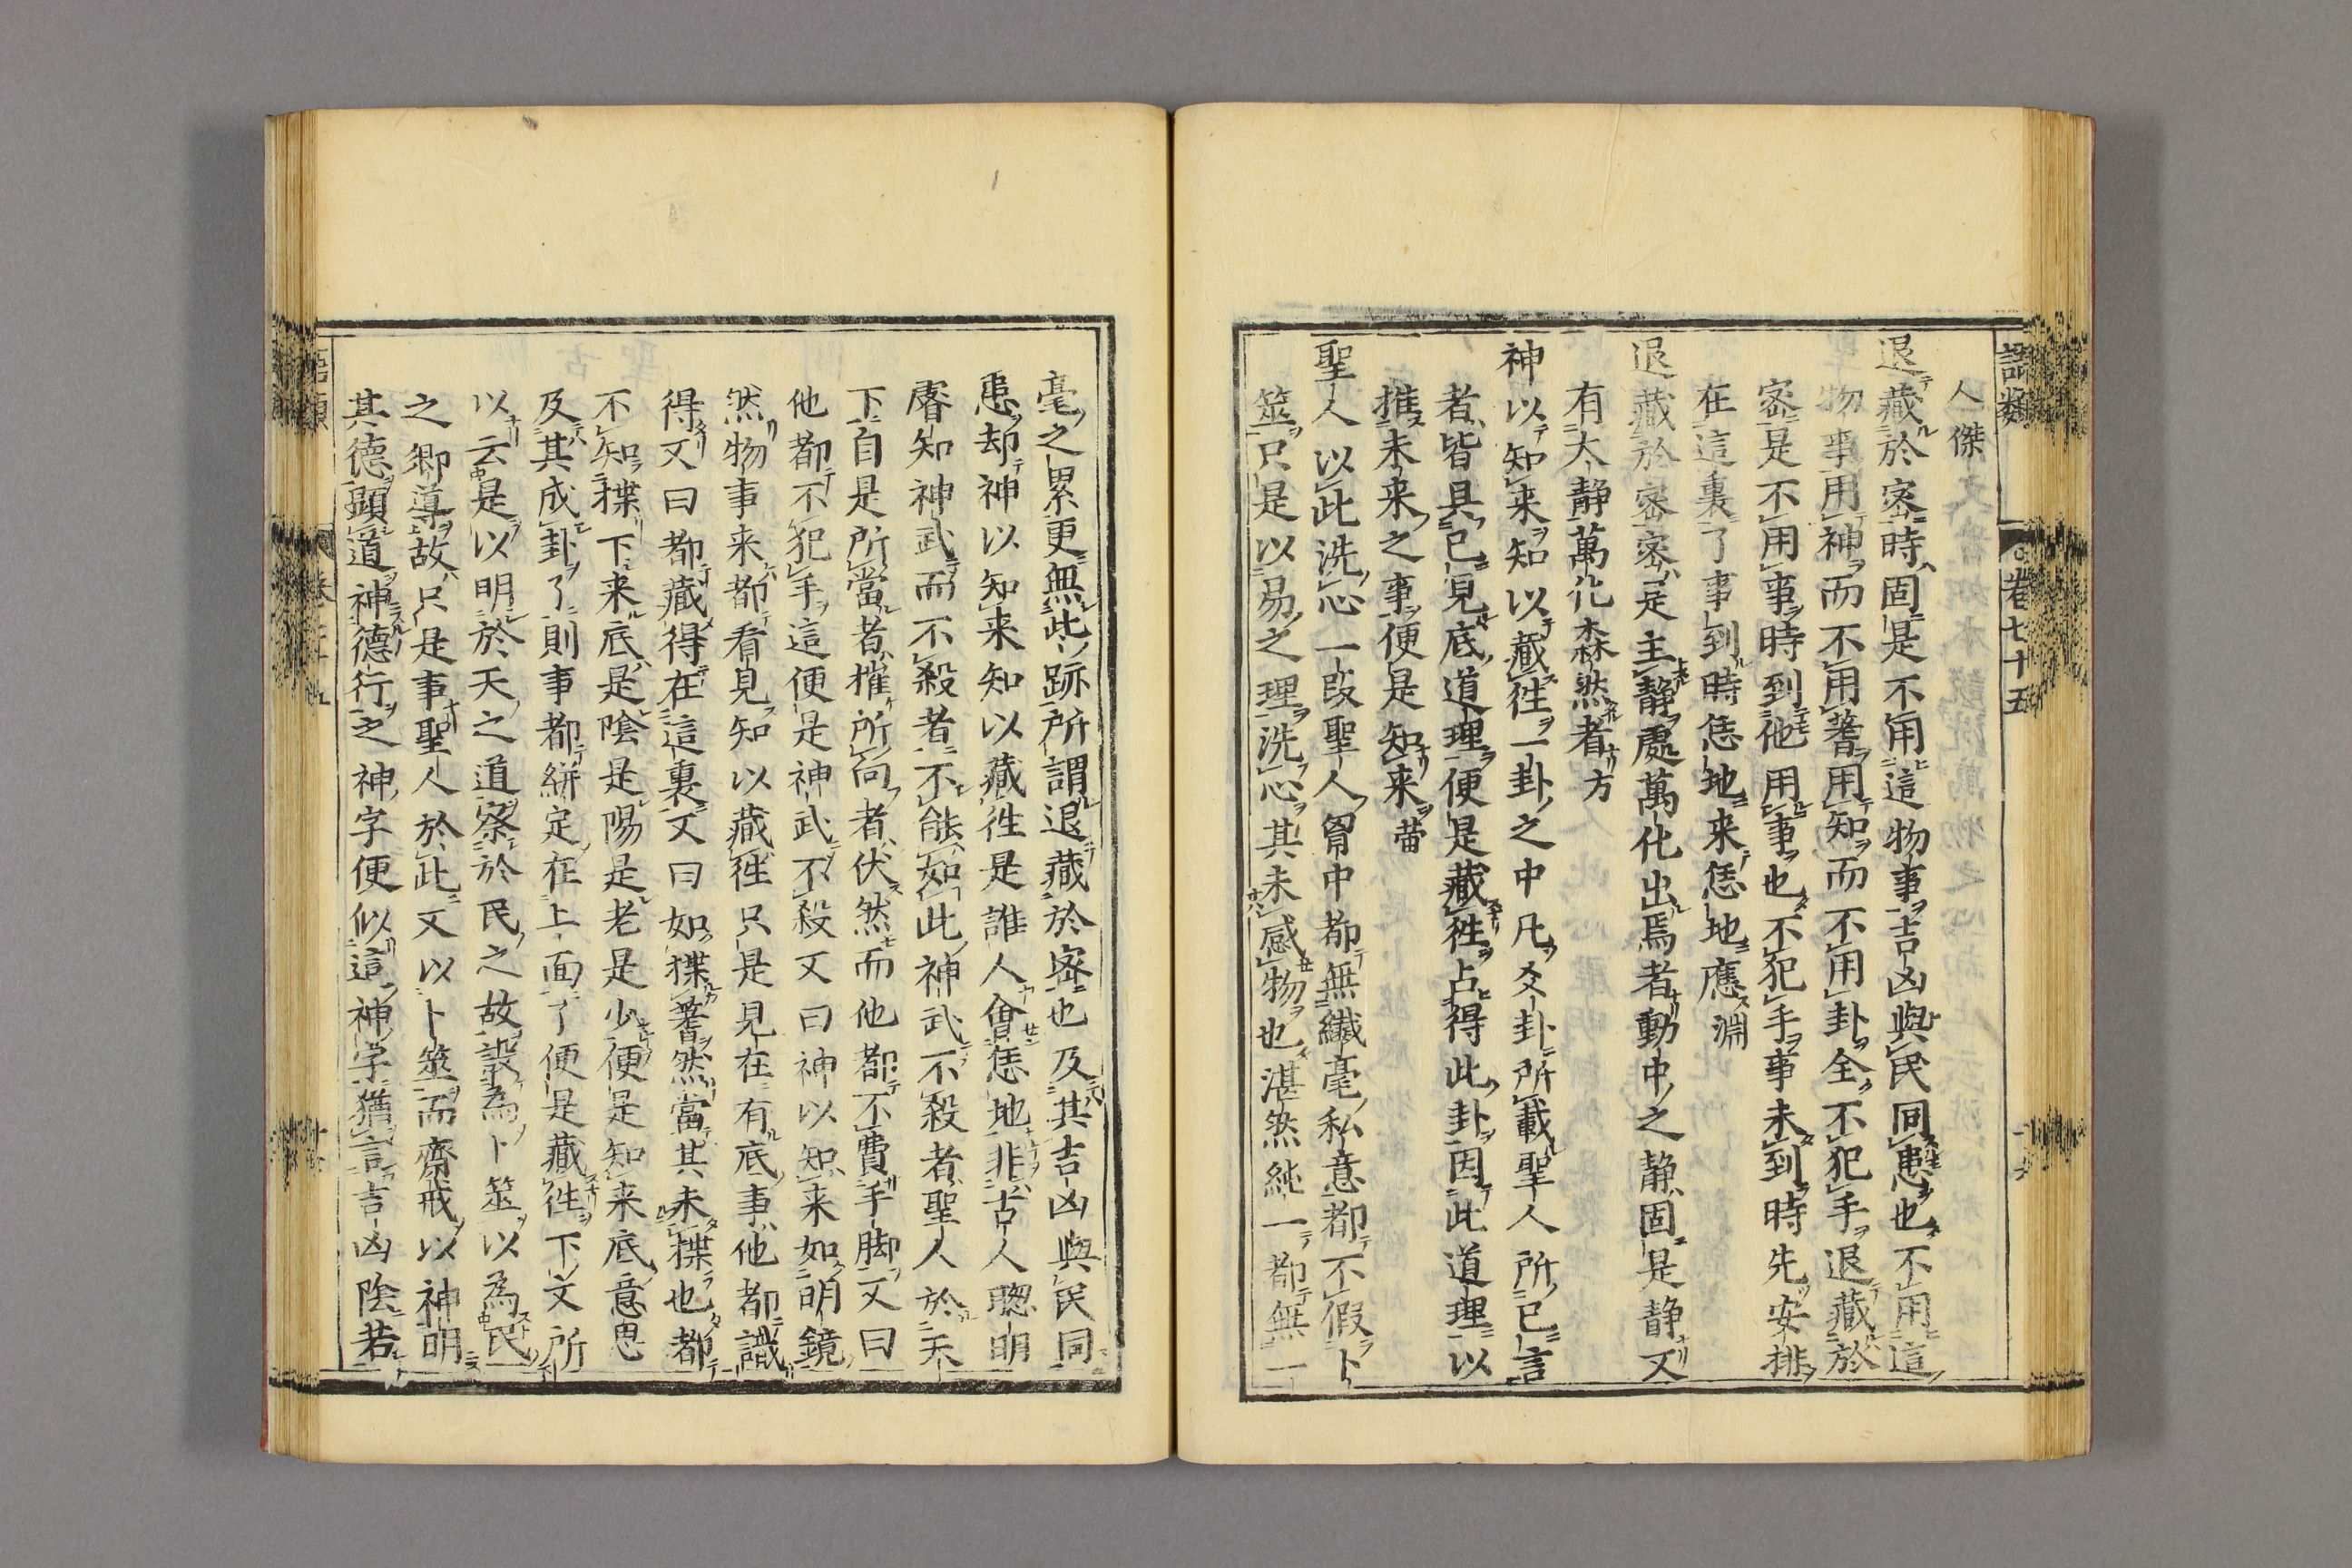 語類
卷七十五
人傑
退藏於密時固是不用這物事吉凶與民同患也不用這
物事用神而不用蓍用知而不用卦全不犯手退藏於
密是不用事時到他用事也不犯手事未到時先安排
在這裏了事到時恁地来恁地應淵
退藏於密密是主靜處萬化出焉者動中之静固是静又
有大静萬化森然者方
神以知来知以藏徃一卦之中凡爻卦所載聖人所已言
者皆具已見底道理便是藏徃占得此卦因此道理以
推未来之事便是知来䕫
聖人以此洗心一段聖人胷中都無纖毫私意都不假卜
筮只是以易之理洗心其未感物也湛然純一都無一
毫之累更無此跡所謂退藏於密也及其吉凶與民同
患却神以知来知以藏徃是誰人會恁地非古人聰明
睿知神武而不殺者不能如此神武不殺者聖人於天
下自是所當者摧所向者伏然而他都不費手脚又曰
他都不犯手這便是神武不殺又曰神以知来如明鏡
然物事来都看見知以藏徃只是見在有底事他都識
得又曰都藏得在這裏又曰如揲蓍然當其未揲也都
不知揲下来底是陰是陽是老是少便是知来底意思
及其成卦了則事都絣定在上面了便是藏徃下文所
以云是以明於天之道察於民之故設為卜筮以為民
之郷導故只是事聖人於此又以卜筮而齋戒以神明
其德顯道神德行之神字便似這神字猶言吉凶陰若